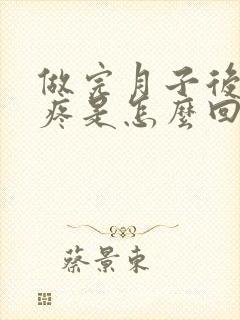 做完月子後
疼是怎麼回
蔡景東